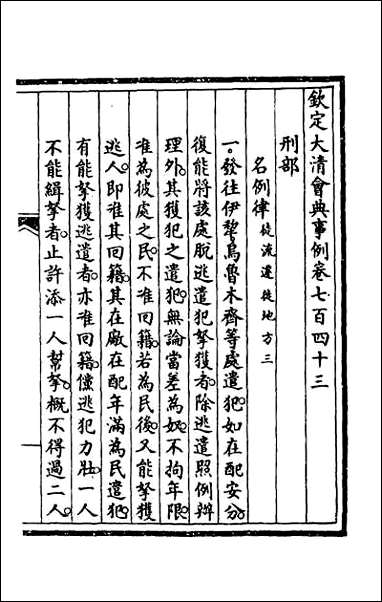 欽定大清會典事例卷七百四十三
刑部
名例律徒流遷徙地方三
一。發往伊犂烏魯木齊等處遣犯。如在配安分。
復能將該處脫逃遣犯拏獲者。除逃遣照例辦
理外。其獲犯之遣犯。無論當差為奴。不拘年限。
准為彼處之民。不准回籍。若為民後。又能拏獲
逃人。即准其回籍。其在廠在配年滿為民遣犯。
有能拏獲逃遣者。亦准回籍。儻逃犯力壯。一人
不能緝拏者。止許添一人幫拏。概不得過二人。